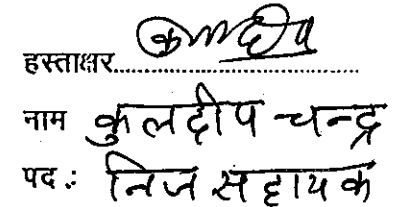 हस्ताक्षर.......................................
नाम कुलदीप चन्द्र
पद : निज सहायक